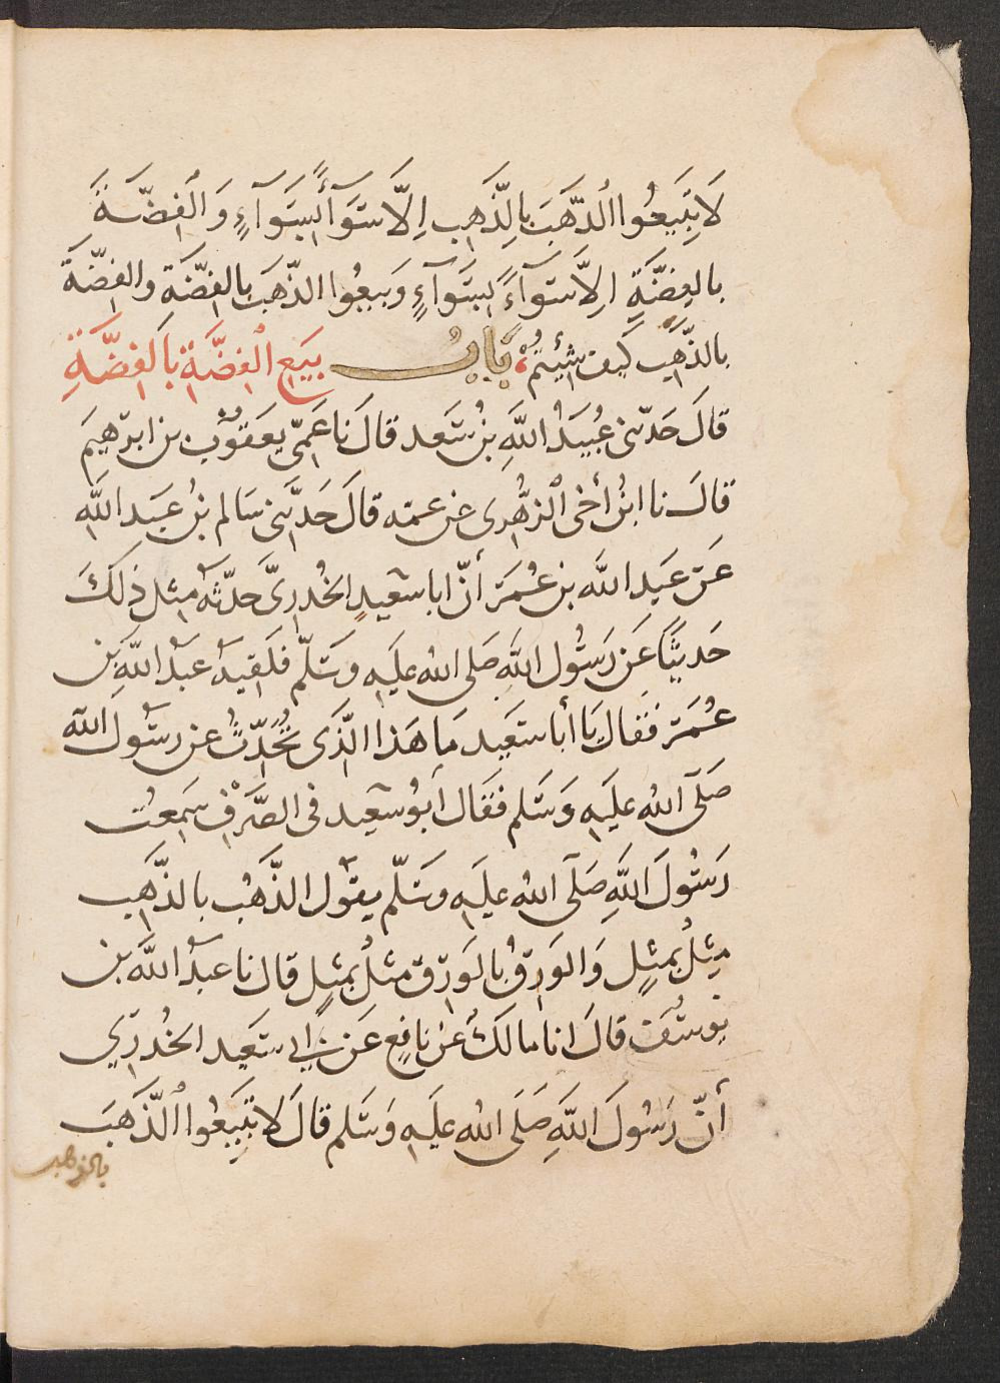 لَا تَبِيعُوا الذَّهَبَ بِالذَّهَبِ اِلَّا سَوَآءً بِسَوَآءٍ وَالْفِضَّةَ
بِالفِضَّةِ اِلَّا سَوَآءً بِسَوَآءٍ وَبِيعُوا الذَّهَبَ بِالفِضَّةِ وَالفِضَّةَ
بِالذَّهَبِ كَيفَ شِئْتُمْ بَابُ بَيعِ الْفِضَّةِ بِالفِضَّةِ
قَالَ حَدَّثَنِي عُبَيْدُ اللَّهِ بنُ سَعْد قَالَ نَا عَمِّي يَعقُوبُ بن ابرهِيمَ
قَالَ نا ابنُ أخى الزُّهْرِى عَن عمه قَالَ حَدَّثَنِي سَالم بنُ عَبْد اللَّهِ
عَنْ عَبْد الله بن عُمَرَ أنَّ ابا سَعِيدٍ الخُدرِىَّ حدَّثهُ مِثل ذَلكَ
حَديثًا عَن رَسُول اللَّهِ صَلى اللهُ عَلَيهِ وسَلَّم فَلَقِيهُ عبدُ اللَّهِ بن
عُمَرَ فَقَالَ يَا أبَا سَعِيد مَا هَذا الَّذَى تُحَدِّثُ عن رسُول الله
صَلَّى اللهُ عَلَيهِ وَسَلم فَقَال أَبُو سَعِيد فى الصَّرْفِ سَمِعْتُ
رَسُولَ اللَّهِ صَلَّى اللهُ عَلَيهِ وسَلَّم يقُول الذَّهَبُ بِالذَّهَبِ
مِثلُ بمِثلٍ وَالوَرِقُ بالوَرِقِ مثلُ بمِثلٍ قال نا عبدُ اللَّه بن
يُوسُفَ قَالَ انا مالكُ عَنْ نَافِعٍ عَن ابي سَعِيد الخُدرِيِّ
أنَّ رَسُولَ اللَّهِ صَلَى اللهُ عَلَيهِ وَسَلم قَالَ لا تَبِيعُوا الذَّهَبَ
بالذهب